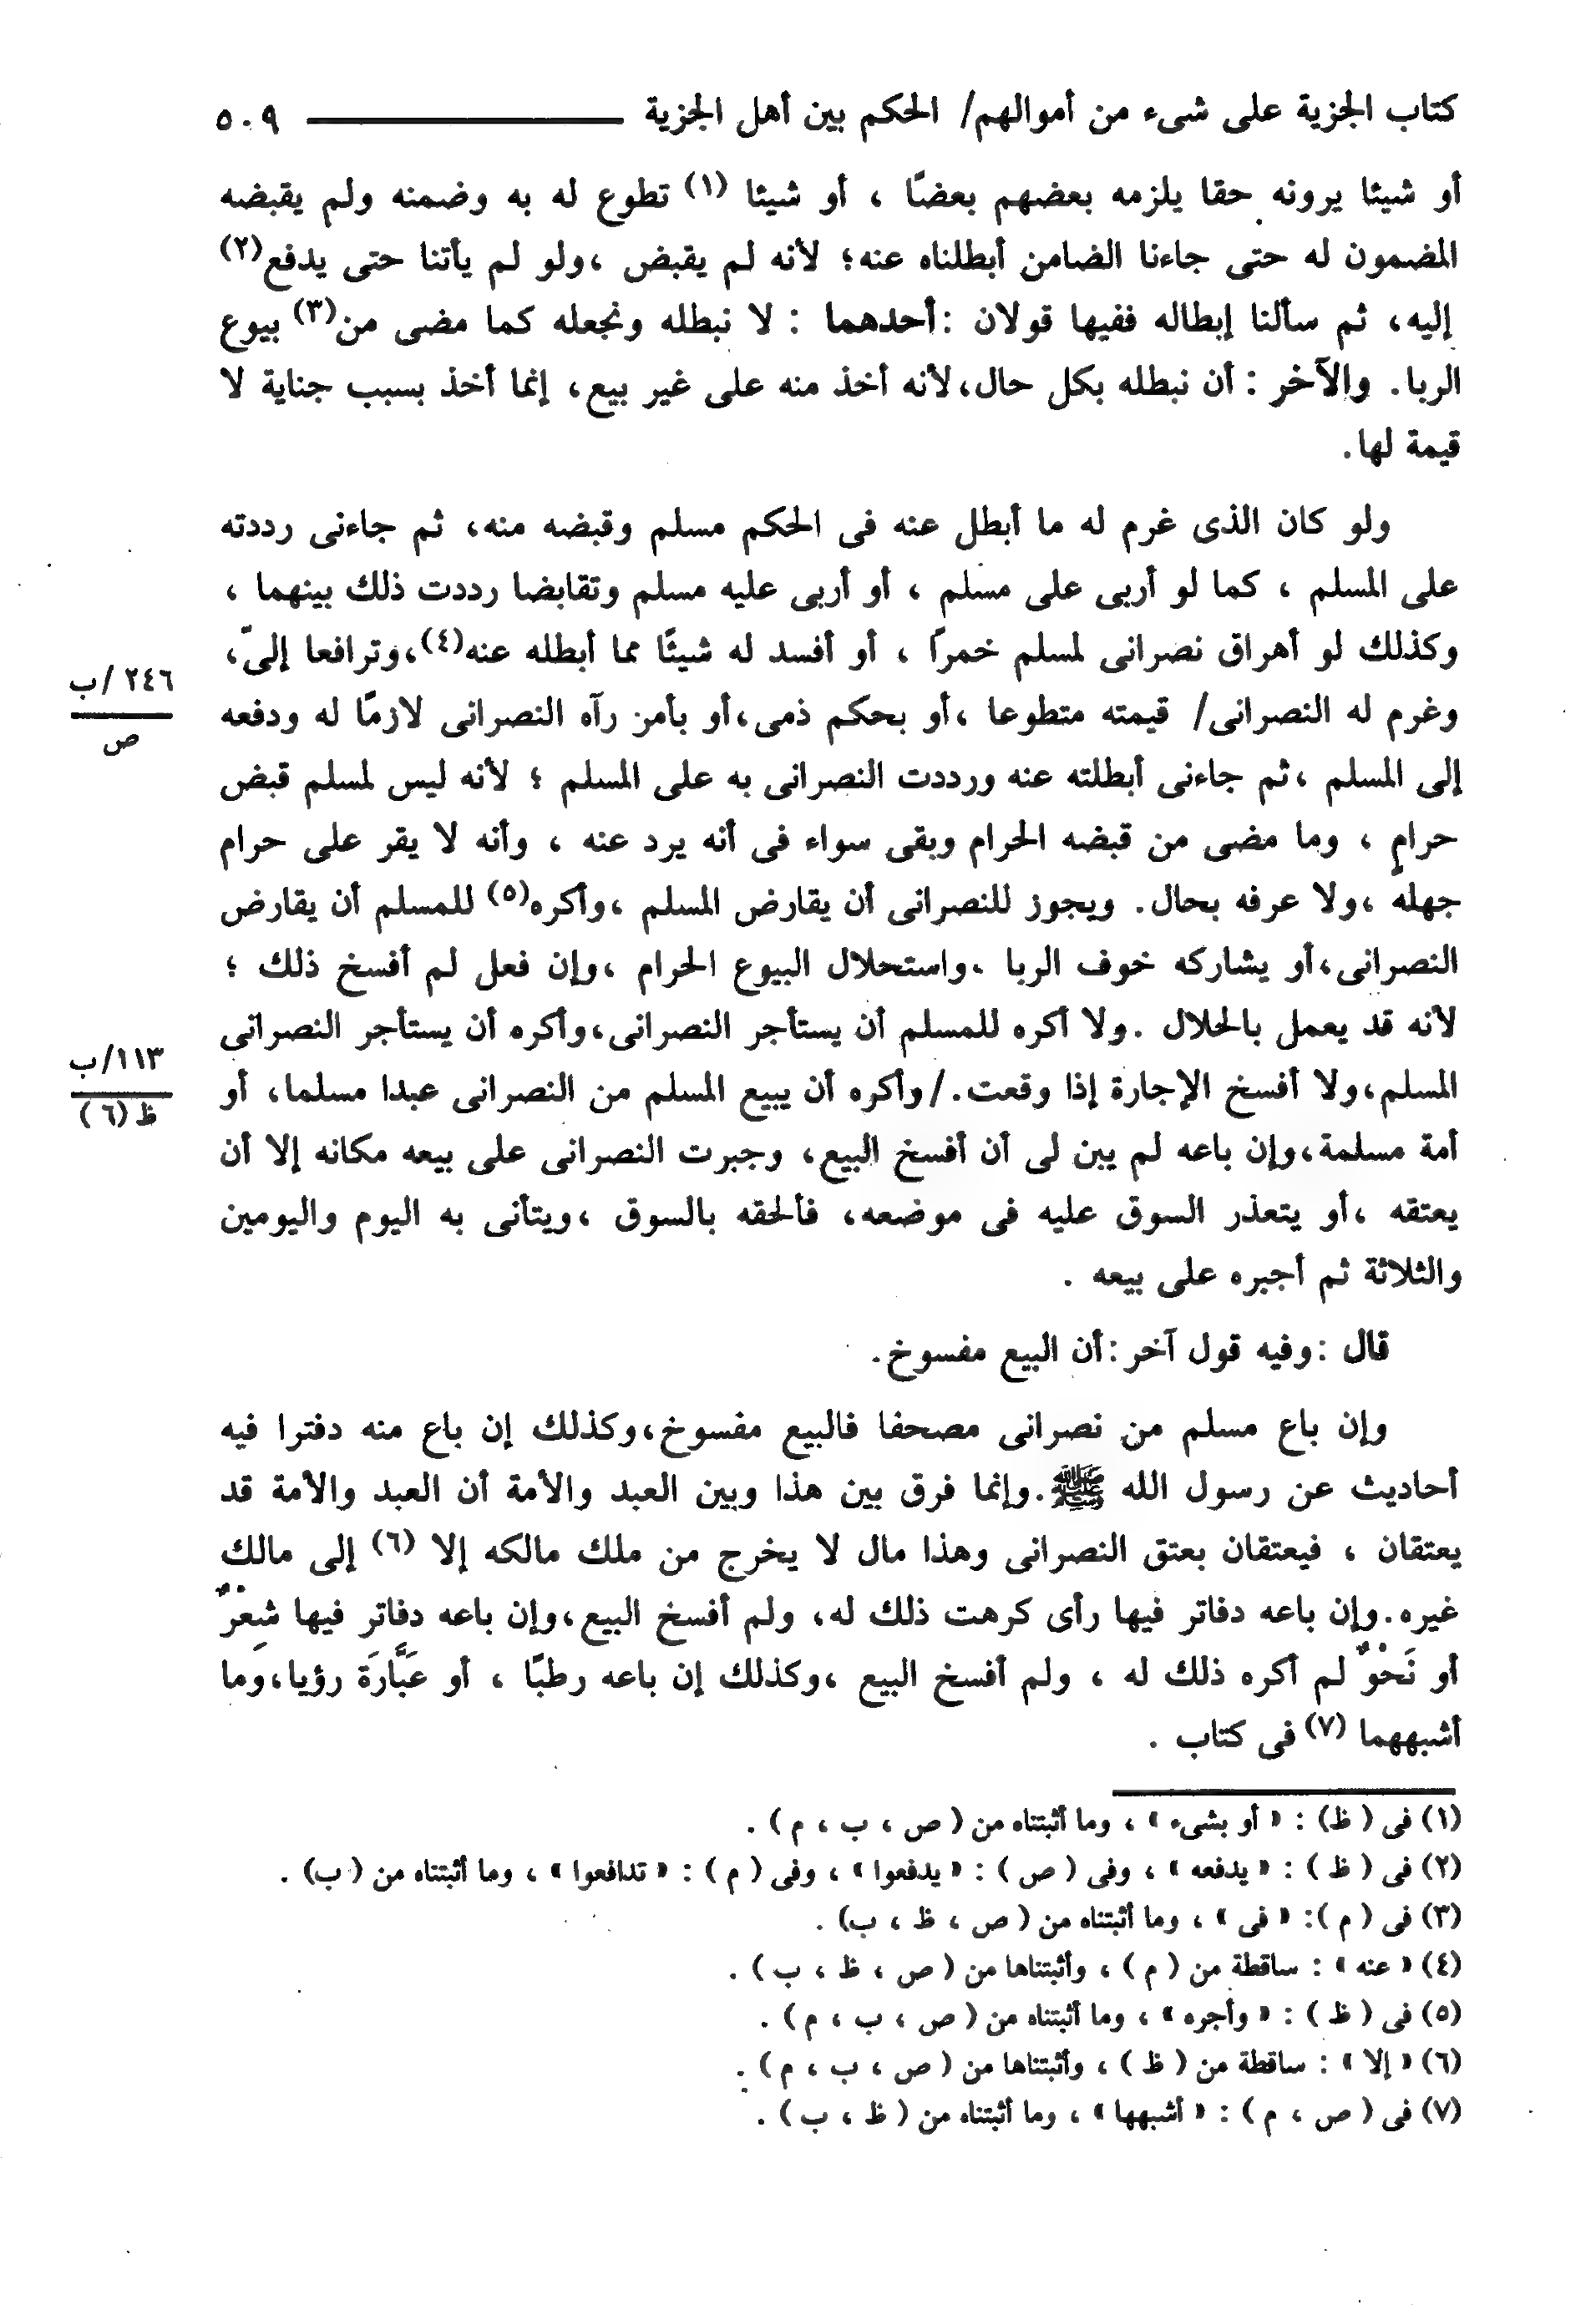 كتاب الجزية على شىء من أموالهم/ الحكم بين أهل الجزية ٥٠٩
أو شيئا يرونه حقا يلزمه بعضهم بعضًا ، أو شيئا (١) تطوع له به وضمنه ولم يقبضه
المضمون له حتى جاءنا الضامن أبطلناه عنه؛ لأنه لم يقبض ،ولو لم يأتنا حتى يدفع(٢)
إليه، ثم سألنا إبطاله ففيها قولان :أحدهما : لا نبطله ونجعله كما مضى من(٣) بيوع
الربا. والآخر : أن نبطله بكل حال،لأنه أخذ منه على غير بيع، إنما أخذ بسبب جناية لا
قيمة لها.
ولو كان الذى غرم له ما أبطل عنه فى الحكم مسلم وقبضه منه، ثم جاءنى رددته
على المسلم ، كما لو أربى على مسلم ، أو أربى عليه مسلم وتقابضا رددت ذلك بينهما ،
وكذلك لو أهراق نصرانى لمسلم خمرًا ، أو أفسد له شيئًا مما أبطله عنه(٤)،وترافعا إلىّ،
٢٤٦ /ب
ص
وغرم له النصرانى/ قيمته متطوعا ،أو بحكم ذمى،أو بأمر رآه النصرانى لازمًا له ودفعه
إلى المسلم ،ثم جاءنى أبطلته عنه ورددت النصرانى به على المسلم ؛ لأنه ليس لمسلم قبض
حرامٍ ، وما مضى من قبضه الحرام وبقى سواء فى أنه يرد عنه ، وأنه لا يقر على حرام
جهله ،ولا عرفه بحال. ويجوز للنصرانى أن يقارض المسلم ،وأكره(٥) للمسلم أن يقارض
النصرانى،أو يشاركه خوف الربا ،واستحلال البيوع الحرام ،وإن فعل لم أفسخ ذلك ؛
لأنه قد يعمل بالحلال .ولا أكره للمسلم أن يستأجر النصرانى،وأكره أن يستأجر النصرانى
١١٣/ب
ظ (٦)
المسلم،ولا أفسخ الإجارة إذا وقعت./وأكره أن يبيع المسلم من النصرانى عبدا مسلما، أو
أمة مسلمة،وإن باعه لم يبن لى أن أفسخ البيع، وجبرت النصرانى على بيعه مكانه إلا أن
يعتقه ،أو يتعذر السوق عليه فى موضعه، فألحقه بالسوق ،ويتأنى به اليوم واليومين
والثلاثة ثم أجبره على بيعه .
قال :وفيه قول آخر:أن البيع مفسوخ.
وإن باع مسلم من نصرانى مصحفا فالبيع مفسوخ،وكذلك إن باع منه دفترا فيه
أحاديث عن رسول الله ﷺ.وإنما فرق بين هذا وبين العبد والأمة أن العبد والأمة قد
يعتقان ، فيعتقان بعتق النصرانى وهذا مال لا يخرج من ملك مالكه إلا (٦) إلى مالك
غيره.وإن باعه دفاتر فيها رأى كرهت ذلك له، ولم أفسخ البيع،وإن باعه دفاتر فيها شِعْرٌ
أو نَحْوٌ لم أكره ذلك له ، ولم أفسخ البيع ،وكذلك إن باعه رطبًا ، أو عَبَّارَة رؤيا،وَما
أشبههما (٧) فى كتاب .
(١) فى ( ظ) : « أو بشىء » ، وما أثبتناه من ( ص ، ب ، م ) .
(٢) فى ( ظ ) : « يدفعه » ، وفى ( ص ) : « يدفعوا » ، وفى ( م ) : « تدافعوا » ، وما أثبتناه من ( ب) .
(٣) فى ( م ): « فى » ، وما أثبتناه من ( ص ، ظ ، ب) .
(٤) « عنه » : ساقطة من ( م ) ، وأثبتناها من ( ص ، ظ ، ب ) .
(٥) فى ( ظ ) : « وأجره » ، وما أثبتناه من ( ص ، ب ، م ) .
(٦) « إلا » : ساقطة من ( ظ ) ، وأثبتناها من ( ص ، ب ، م ) .
(٧) فى ( ص ، م ) : « أشبهها » ، وما أثبتناه من ( ظ ، ب ) .